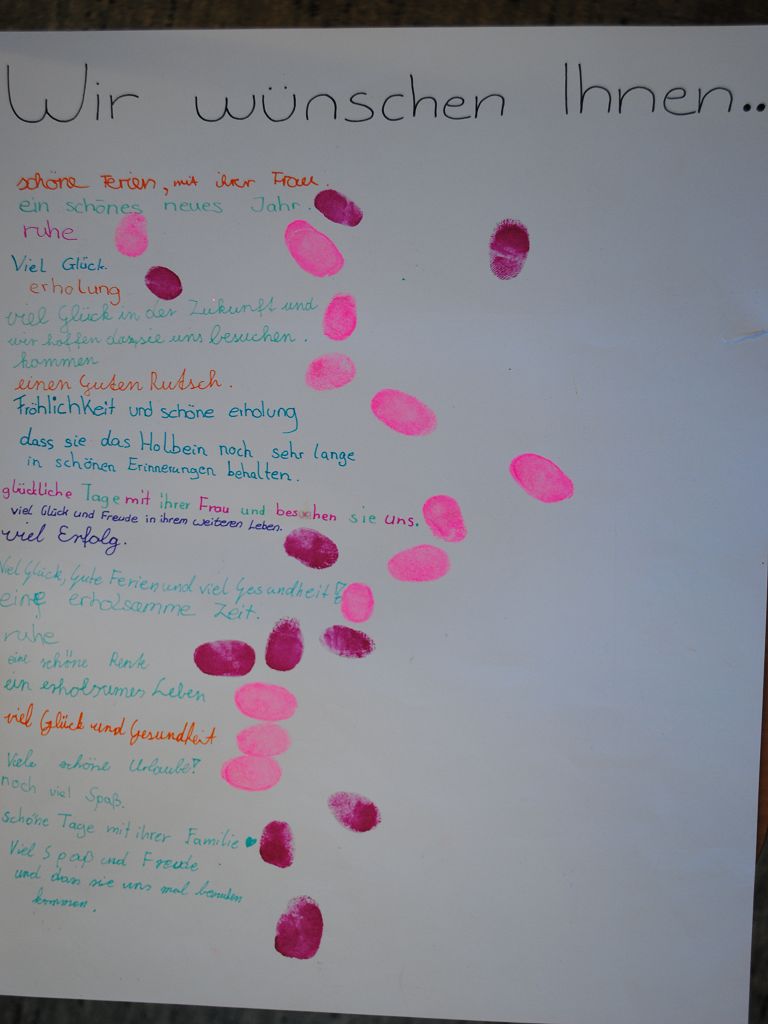 Wir wünschen Ihnen..
schöne Ferien, mit ihrer Frau.
ein schönes neues Jahr.
ruhe
Viel Glück.
erholung
viel Glück in der Zukunft und
wir hoffen dass sie uns besuchen.
kommen
einen Guten Rutsch.
Fröhlichkeit und schöne erholung
dass sie das Holbein noch sehr lange
in schönen Erinnerungen behalten.
glückliche Tage mit ihrer Frau und besuchen sie uns.
viel Glück und Freude in ihrem weiteren Leben.
viel Erfolg.
Viel Glück, Gute Ferien und viel Gesundheit!
eine erholsamme Zeit.
ruhe
eine schöne Rente
ein erholsames Leben
viel Glück und Gesundheit
Viele schöne Urlaube!
noch viel Spaß.
schöne Tage mit ihrer Familie ♥
Viel Spaß und Freude
und dass sie uns mal besuchen
kommen.